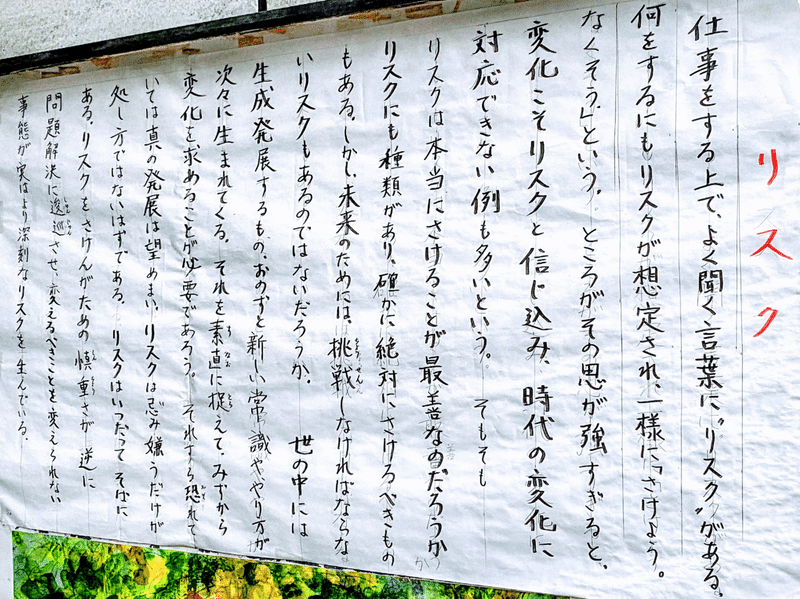 リスク
仕事をする上で、よく聞く言葉に“リスク”がある。
何をするにもリスクが想定され、一様に「さけよう。
なくそう」という。ところがその思が強すぎると、
変化こそリスクと信じ込み、時代の変化に
対応できない例も多いという。 そもそも
リスクは本当にさけることが最善なのだろうか
リスクにも種類があり、確かに絶対にさけるべきもの
もある。しかし、未来のためには、挑戦しなければならな
いリスクもあるのではないだろうか。 世の中には
生成発展するもの、おのずと新しい常識ややり方が
次々に生まれてくる。それを素直に捉えて、みずから
変化を求めることが必要であろう。それすら恐れて
いては真の発展は望めまい。リスクは忌み嫌うだけが
処し方ではないはずである。 リスクはいつだってそばに
ある。リスクをさけんがための慎重さが逆に
問題解決に逡巡させ、変えるべきことを変えられない
事態が実はより深刻なリスクを生んでいる。